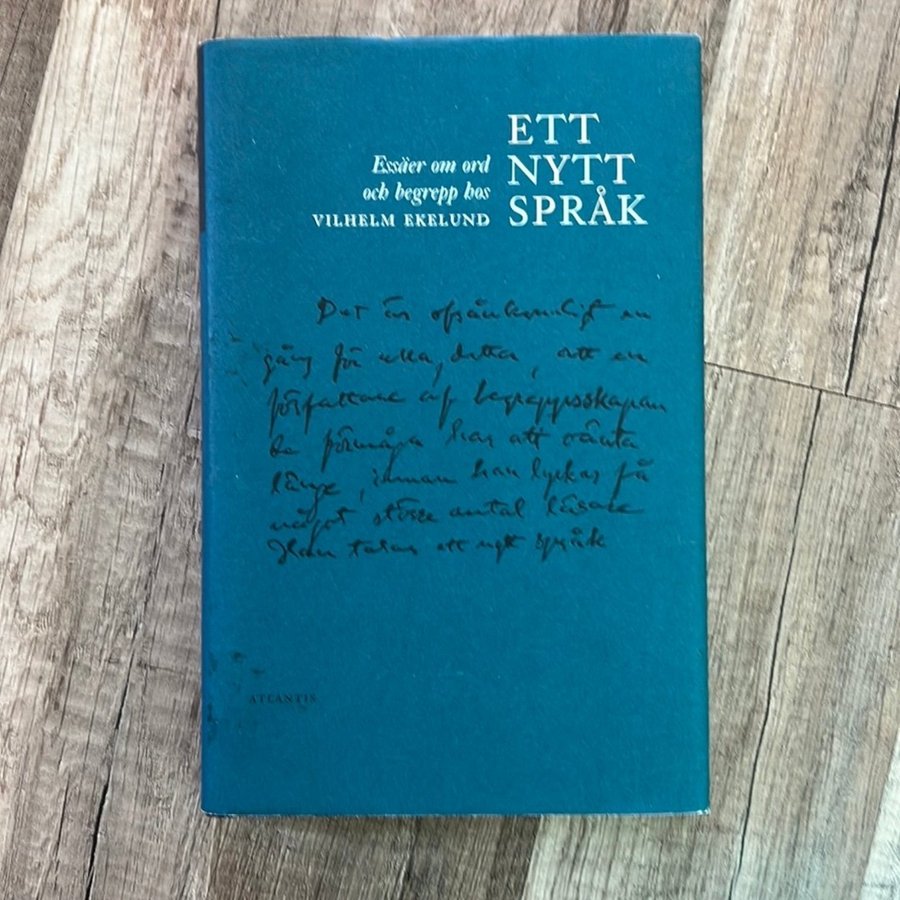 ETT
NYTT
SPRÅK
Essäer om ord
och begrepp hos
VILHELM EKELUND
Det är ofrånkomligt en
gång för alla, detta, att en
författare af begreppsskapan
de förmåga har att vänta
länge, innan han lyckas få
något större antal läsare
Han talar ett nytt språk
ATLANTIS